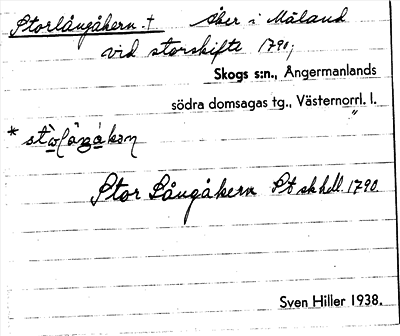 Storlångåkern. † Åker i Måland
vid storskifte 1790;
Skogs s:n., Ångermanlands
södra domsagas tg., Västernorrl. l.
Stor Långåkern St skhdl. 1790
Sven Hiller 1938.